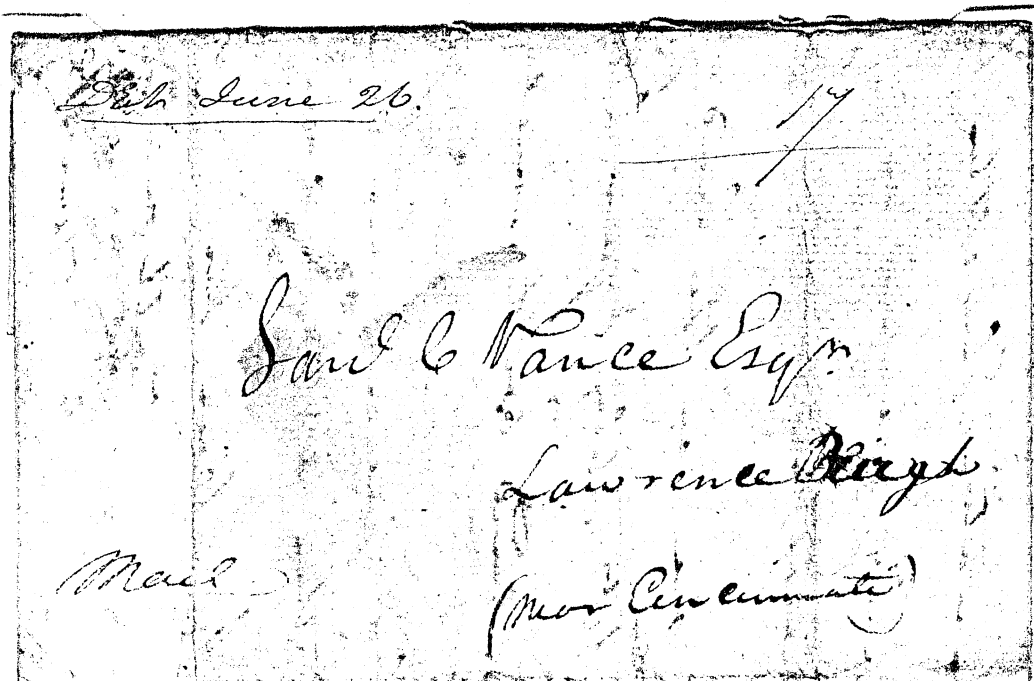 June 26.
17
Saml C Vance Esqr.
Lawrence Burgh
Mail
(near Cincinnati)